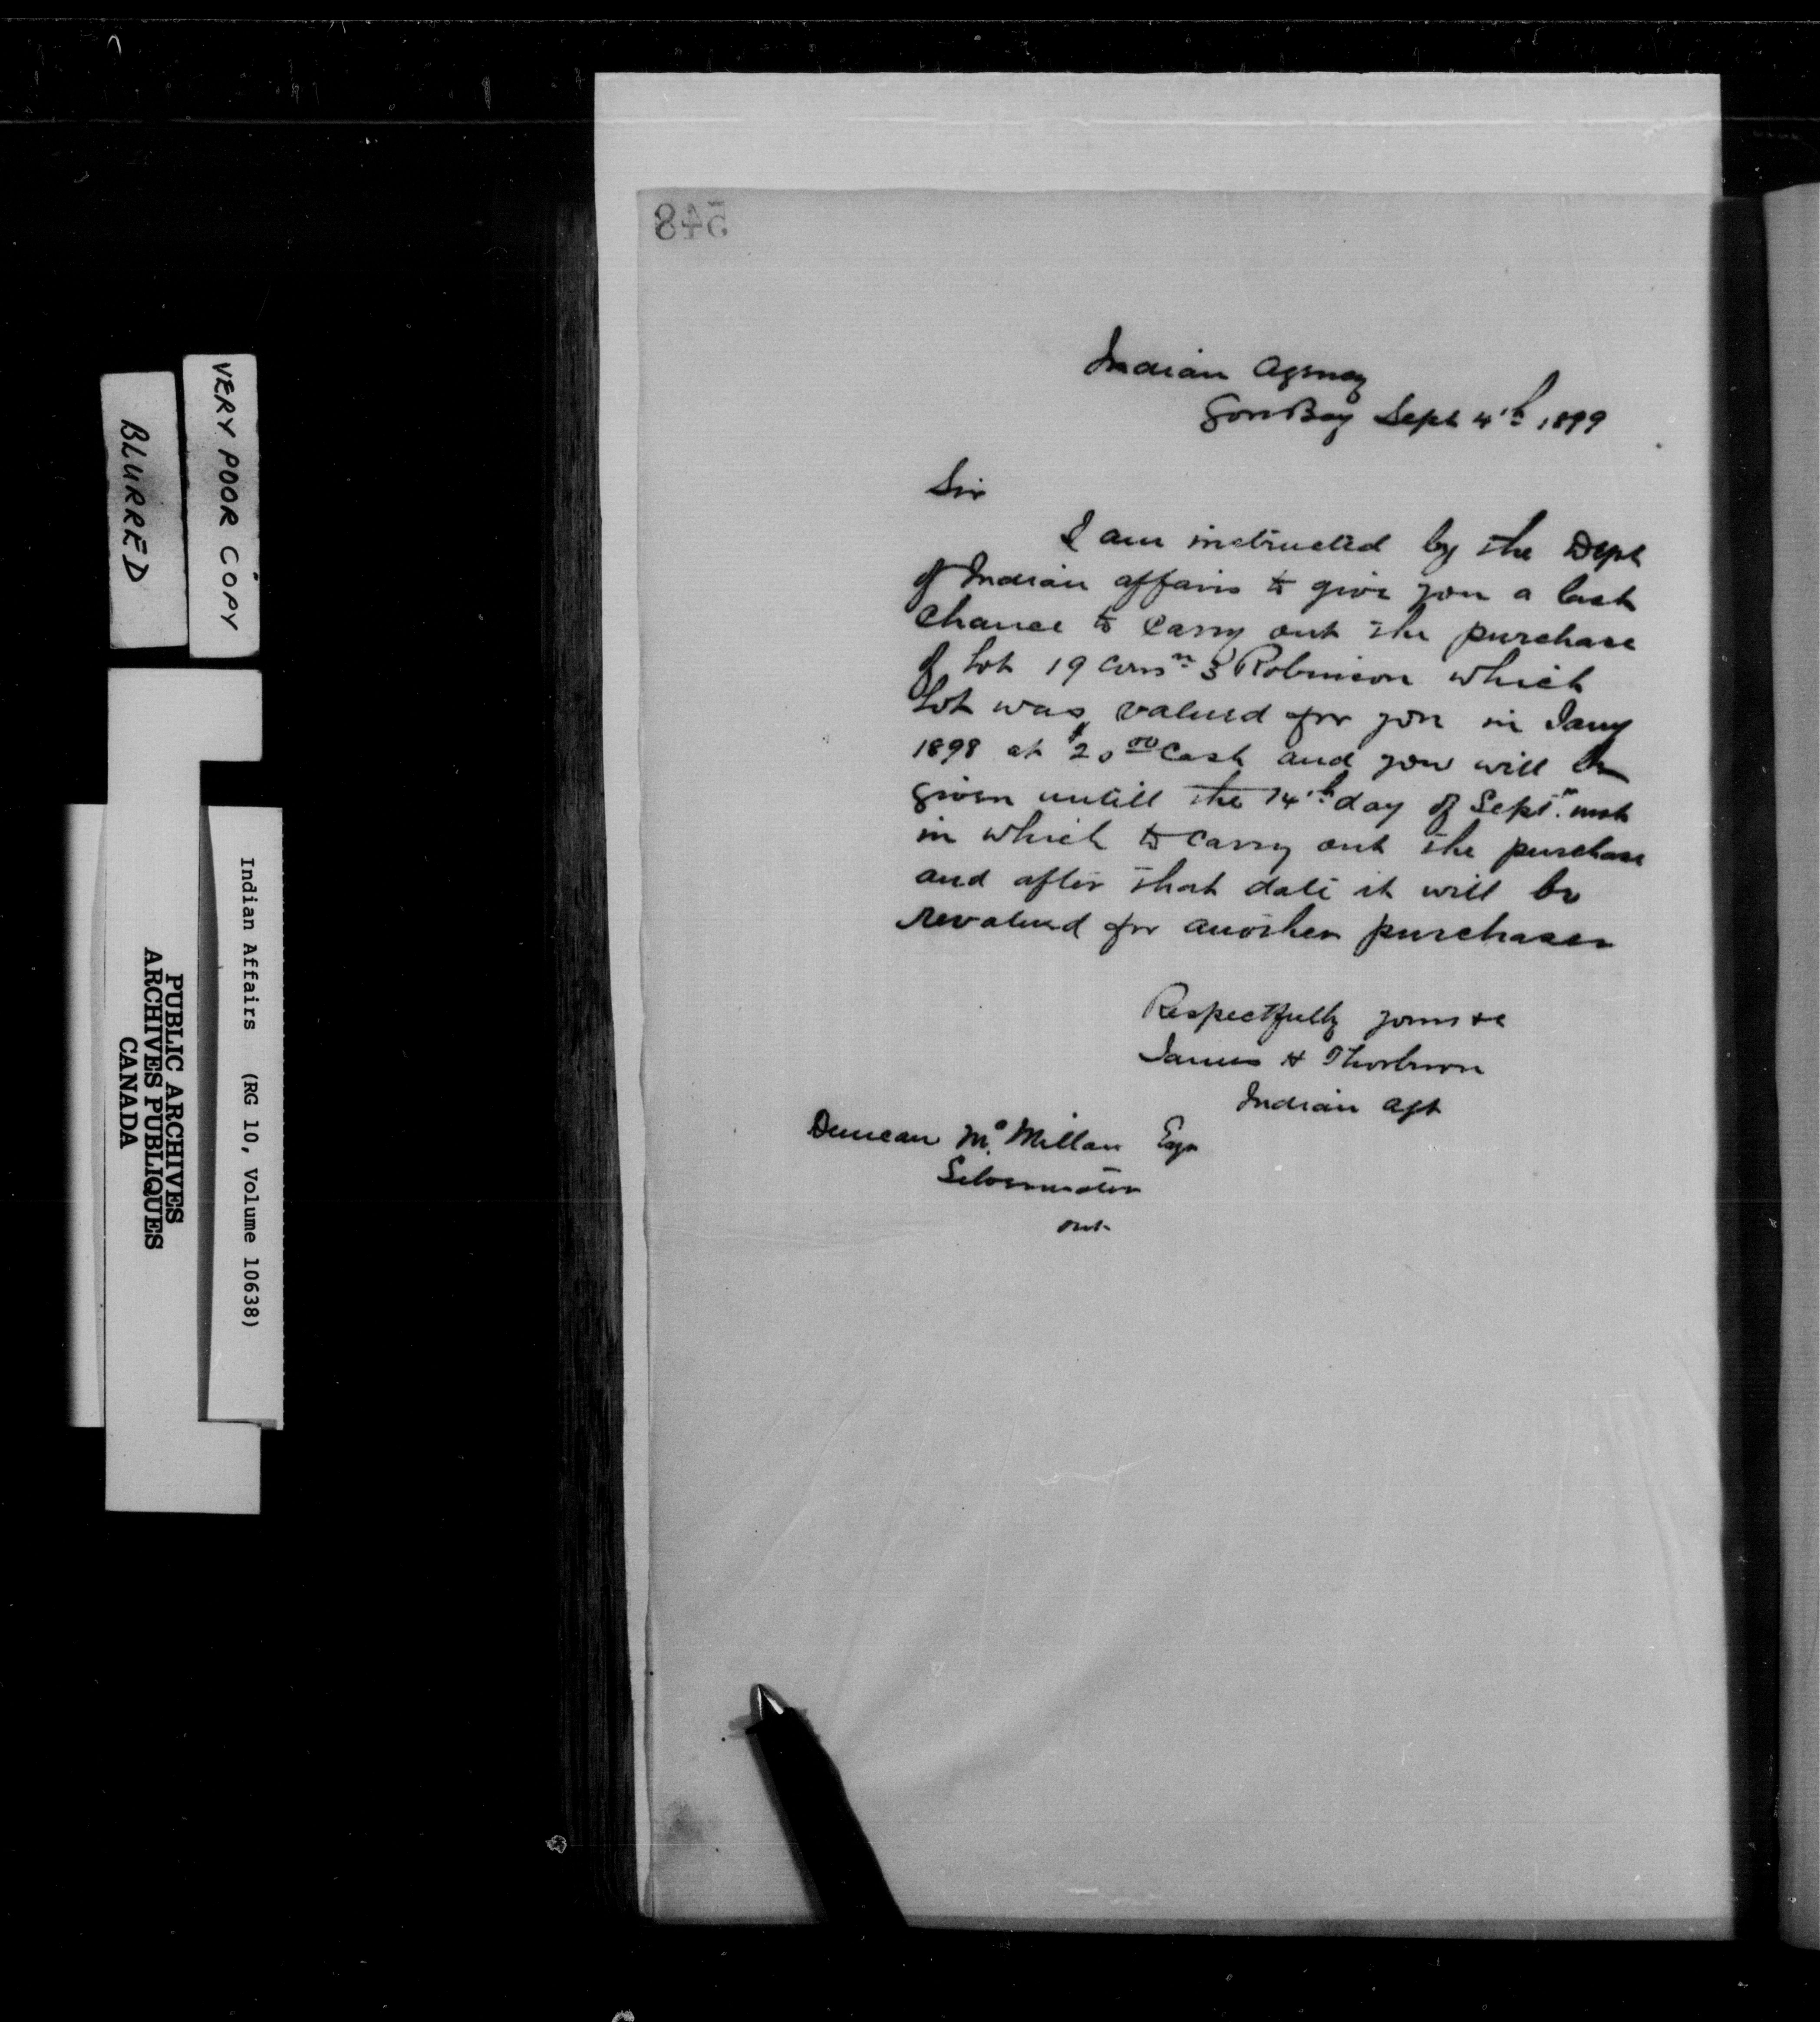 548
Indian Agency
Gore Bay Sept 4th 1899
Sir
I am instructed by the Dept
of Indian affairs to give you a last
chance to carry out the purchase
of Lot 19 Conn 3 Robinson which
Lot was valued for you in Jany
1898 at $20 00 Cash and you will be
given untill the 14th day of Septr. inst
in which to carry out the purchase
and after that date it will be
revalued for another purchaser
Respectfully yours &c
James H Thorburn
Indian Agt
Duncan Mc Millan Esqr
Silverwater
Ont
VERY POOR COPY
BLURRED
Indian Affairs (RG 10, Volume 10638)
PUBLIC ARCHIVES
ARCHIVES PUBLIQUES
CANADA